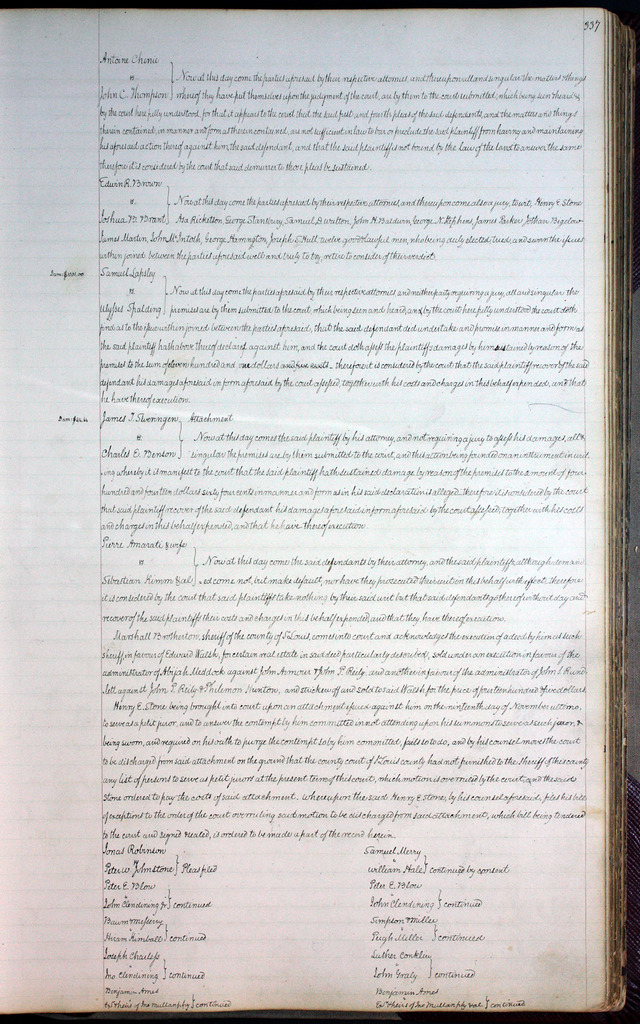 337
Antoine Chenie
vs.
John C. Thompson } Now at this day come the parties aforesaid by their respective attornies, and thereupon all and singular the matters & things
whereof they have put themselves upon the judgment of the court, are by them to the court submitted, which being seen & heard &
by the court here fully understood, for that it appears to the court that the said first, and fourth pleas of the said defendants, and the matters and things
therein contained, in manner and form as therein contained, are not sufficient in law to bar or preclude the said plaintiff from having and maintaining
his aforesaid action thereof against him, the said defendant, and that the said plaintiff is not bound by the law of the land to answer the same
therefore it is considered by the court that said demurrer to those pleas be sustained.
Edwin R. Brown
vs.
Joshua B. Brant } Now at this day come the parties aforesaid by their respective attornies, and thereupon come also a jury, to wit, Henry E Stone
Asa Ricketson, George Stansbury, Samuel D. Walton, John H. Baldwin, George N. Stephens, James Parker, Jotham Bigelow
James Martin, John McIntosh, George Harrington, Joseph S. Hull, twelve good & lawful men, who being duly elected, tried, and sworn the issues
within joined between the parties aforesaid well and truly to try, retire to consider of their verdict.
Samuel Lapsley
vs.
Ulysses Spalding } Now at this day come the parties aforesaid by their respective attornies and neither party requiring a jury, all and singular the
premises are by them submitted to the court, which being seen and heard, and by the court here fully understood the court doth
find as to the issue within joined between the parties aforesaid, that the said defendant did undertake and promise in manner and form as
the said plaintiff hath above thereof declared against him, and the court doth assess the plaintiff's damages by him sustained by reason of the
premises to the sum of eleven hundred and one dollars therefore it is considered by the court that the said plaintiff recover of the said
defendant his damages aforesaid in form aforesaid by the court assessed together with his costs and charges in this behalf expended, and that
he have thereof execution.
James T. Swearingen } Attachment
vs.
Charles E. Benson } Now at this day comes the said plaintiff by his attorney, and not requiring a jury to assess his damages, all &
singular the premises are by him submitted to the court, and this action being founded on an instrument in writ-
ing whereby it is manifest to the court that the said plaintiff hath sustained damage by reason of the premises to the amount of four
hundred and fourteen dollars sixty four cents in manner and form as in his said declaration is alleged. therefore it is considered by the court
that said plaintiff recover of the said defendant his damages aforesaid in form aforesaid by the court assessed, together with his costs
and charges in this behalf expended, and that he have thereof execution.
Pierre Amarati & wife
vs.
Sebastian Kimm & al } Now at this day come the said defendants by their attorney, and the said plaintiffs although demand-
ed come not, but make default, nor have they prosecuted their suit in this behalf with effect. therefore
it is considered by the court that said plaintiffs take nothing by their said writ but that said defendants go thereof without day and
recover of the said plaintiffs their costs and charges in this behalf expended, and that they have thereof execution.
Marshall Brotherton, sheriff of the county of St Louis, comes into court and acknowledges the execution of a deed by him as such
sheriff, in favour of Edward Walsh, for certain real estate in said deed particularly described, sold under an execution in favour of the
administrator of Abijah Meddock against John Armour & John P. Reily, and another in favour of the administrator of John S. Rund-
lett against John P. Reily & Philemon Hunton, and stricken off and sold to said Walsh for the price of fourteen hundred & five dollars.
Henry E. Stone being brought into court upon an attachment issued against him on the nineteenth day of November ultimo,
to serve as a petit juror, and to answer the contempt by him committed in not attending upon his summons to serve as such juror, &
being sworn, and required on his oath to purge the contempt so by him committed, fails so to do, and by his counsel moves the court
to be discharged from said attachment on the ground that the county court of St Louis county had not furnished to the Sheriff of this county
any list of persons to serve as petit jurors at the present term of this court, which motion is overruled by the court, and the said
Stone ordered to pay the costs of said attachment. whereupon the said Henry E Stone, by his counsel aforesaid, files his bill
of exceptions to the order of the court overruling said motion to be discharged from said attachment, which bill being tendered
to the court and signed & sealed, is ordered to be made a part of the record herein.
Jonas Robinson
Peter W. Johnstone } Pleas filed
Peter E. Blow
John Clendining Jr } continued
Hiram Kimball } continued
Joseph Charless
Jno Clendining } continued
Benjamin Ames
Exr & heirs of Jno Mullanphy } continued
Samuel Merry
William Hale } continued by consent
Peter E. Blow
John Clendining } continued
Simpson & Miller
Pugh Miller } continued
Luther Conkley
John Graly } continued
Benjamin Ames
Exr & heirs of Jno Mullanphy & al } continued